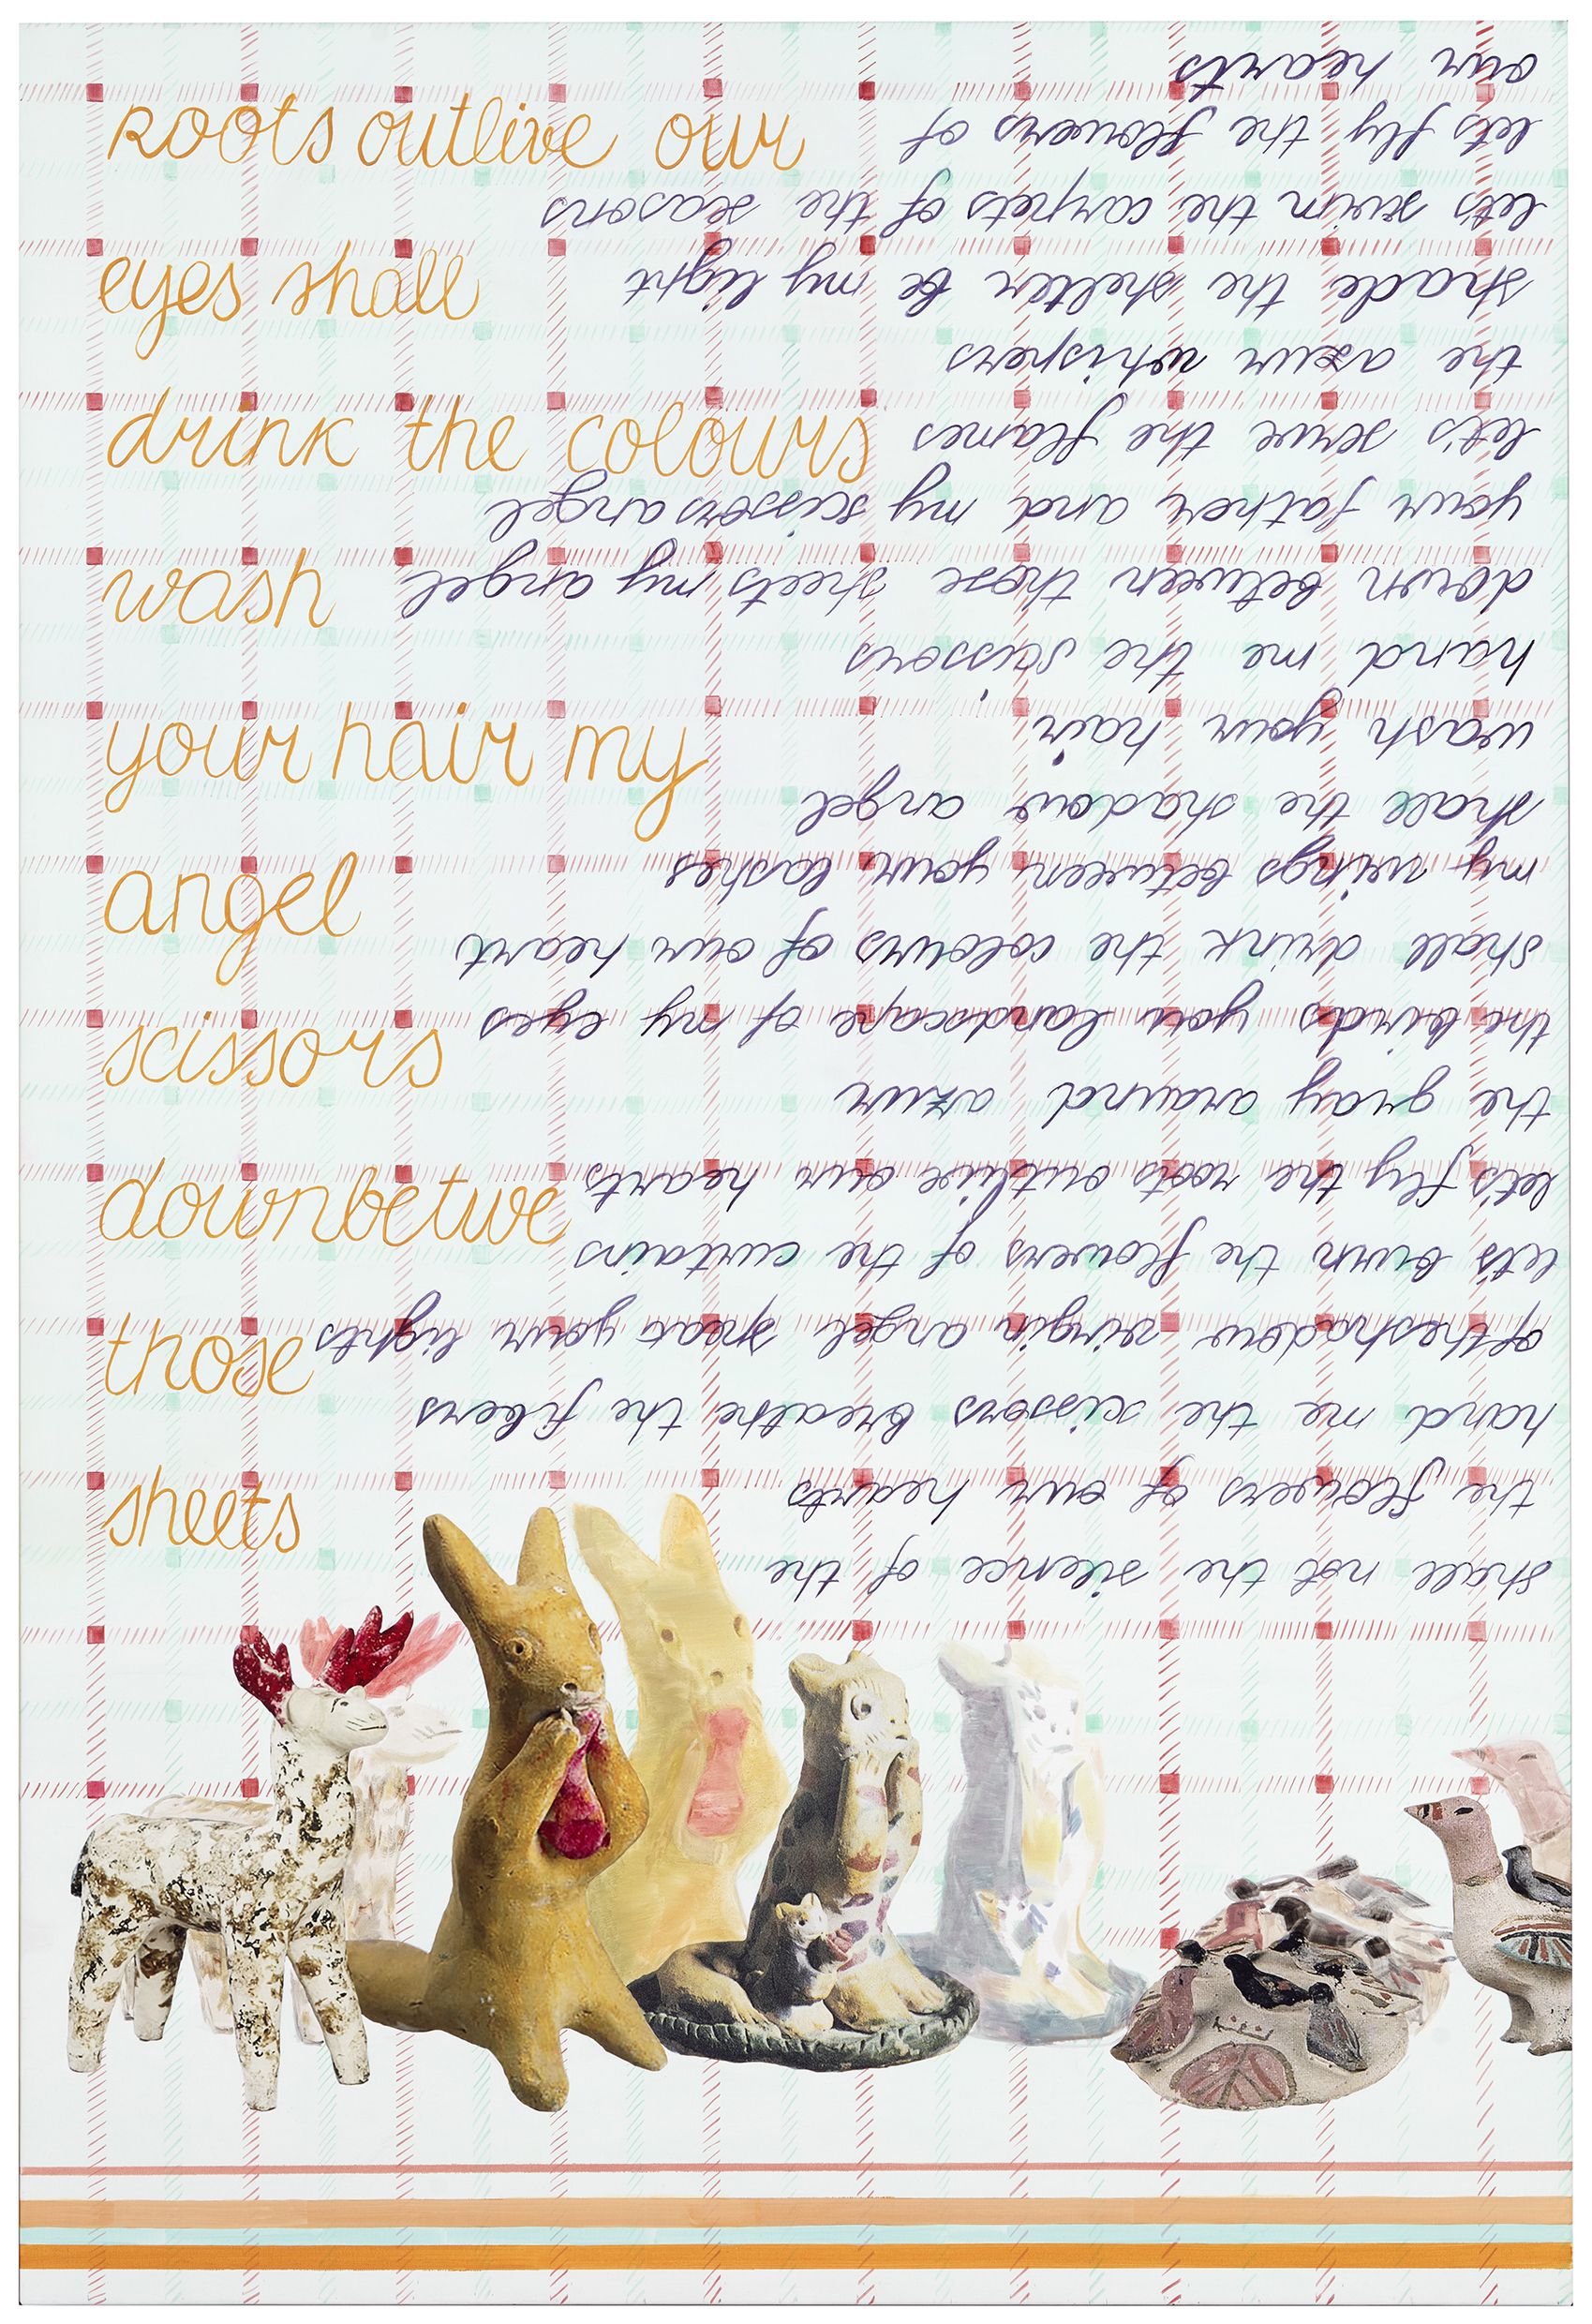 Roots outlive our
eyes shall
drink the colours
wash
your hair my
angel
scissors
downbetwe
those
sheets
shall not the silence of the
the flowers of our hearts
hand me the scissors breathe the fibers
of theshadow virgin angel your lights
let's burn the flowers of the curtains
let's fly the roots outlive our hearts
the gray around azur
the birds your landscape of my eyes
shall drink the colours of our heart
my wings between your lashes
shall the shadow angel
wash your hair
hand me the scissors
down between those sheets my angel
your father and my scissors angel
let's serve the flames
the azur whispers
shade the shelter be my light
let's swim the carpets of the seasons
let's fly the flowers of
our hearts